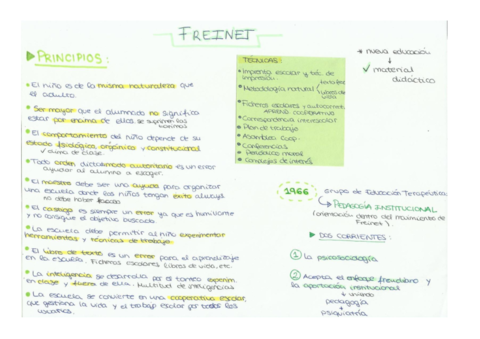 FREINET
PRINCIPIOS:
El niño es de la misma naturaleza que
el adulto.
Ser mayor que el alumnado no significa
estar por encima de ellos
El comportamiento del niño depende de su
estado fisiológico, orgánico y constitucional
✓ clima de clase.
Todo orden dictado modo autoritario es un error
ayudar al alumno a escoger.
El maestro debe ser una ayuda para organizar
una escuela donde los niños tengan éxito
no debe haber fracaso
El castigo es siempre un error ya que es humillante
y no consigue el objetivo buscado
La escuela debe permitir al niño experimentar
herramientas y técnicas de trabajo.
El libro de texto es un error para el aprendizaje
en la escuela. Ficheros escolares, libros de vida, etc.
La inteligencia se desarrolla por el tanteo experim.
en clase y fuera de ella. Multitud de inteligencias
La escuela se convierte en una cooperativa escolar,
que gestiona la vida y el trabajo escolar por todos los
usuarios.
TÉCNICAS:
Imprenta escolar y téc. de
impresión.
Metodología natural
Ficheros escolares y autocorrect.
Correspondencia interescolar
Plan de trabajo
Asamblea coop.
Conferencias
Periódico mural
Complejos de interés
nueva educación
↓
✓ material
didáctico
1966
Grupo de Educación Terapéutica
PEDAGOGÍA INSTITUCIONAL
(orientación dentro del movimiento de
Freinet).
DOS CORRIENTES:
1 La psicosociología
2 Acepta el enfoque freudiano y
la aportación institucional
pedagogía
+
psiquiatría